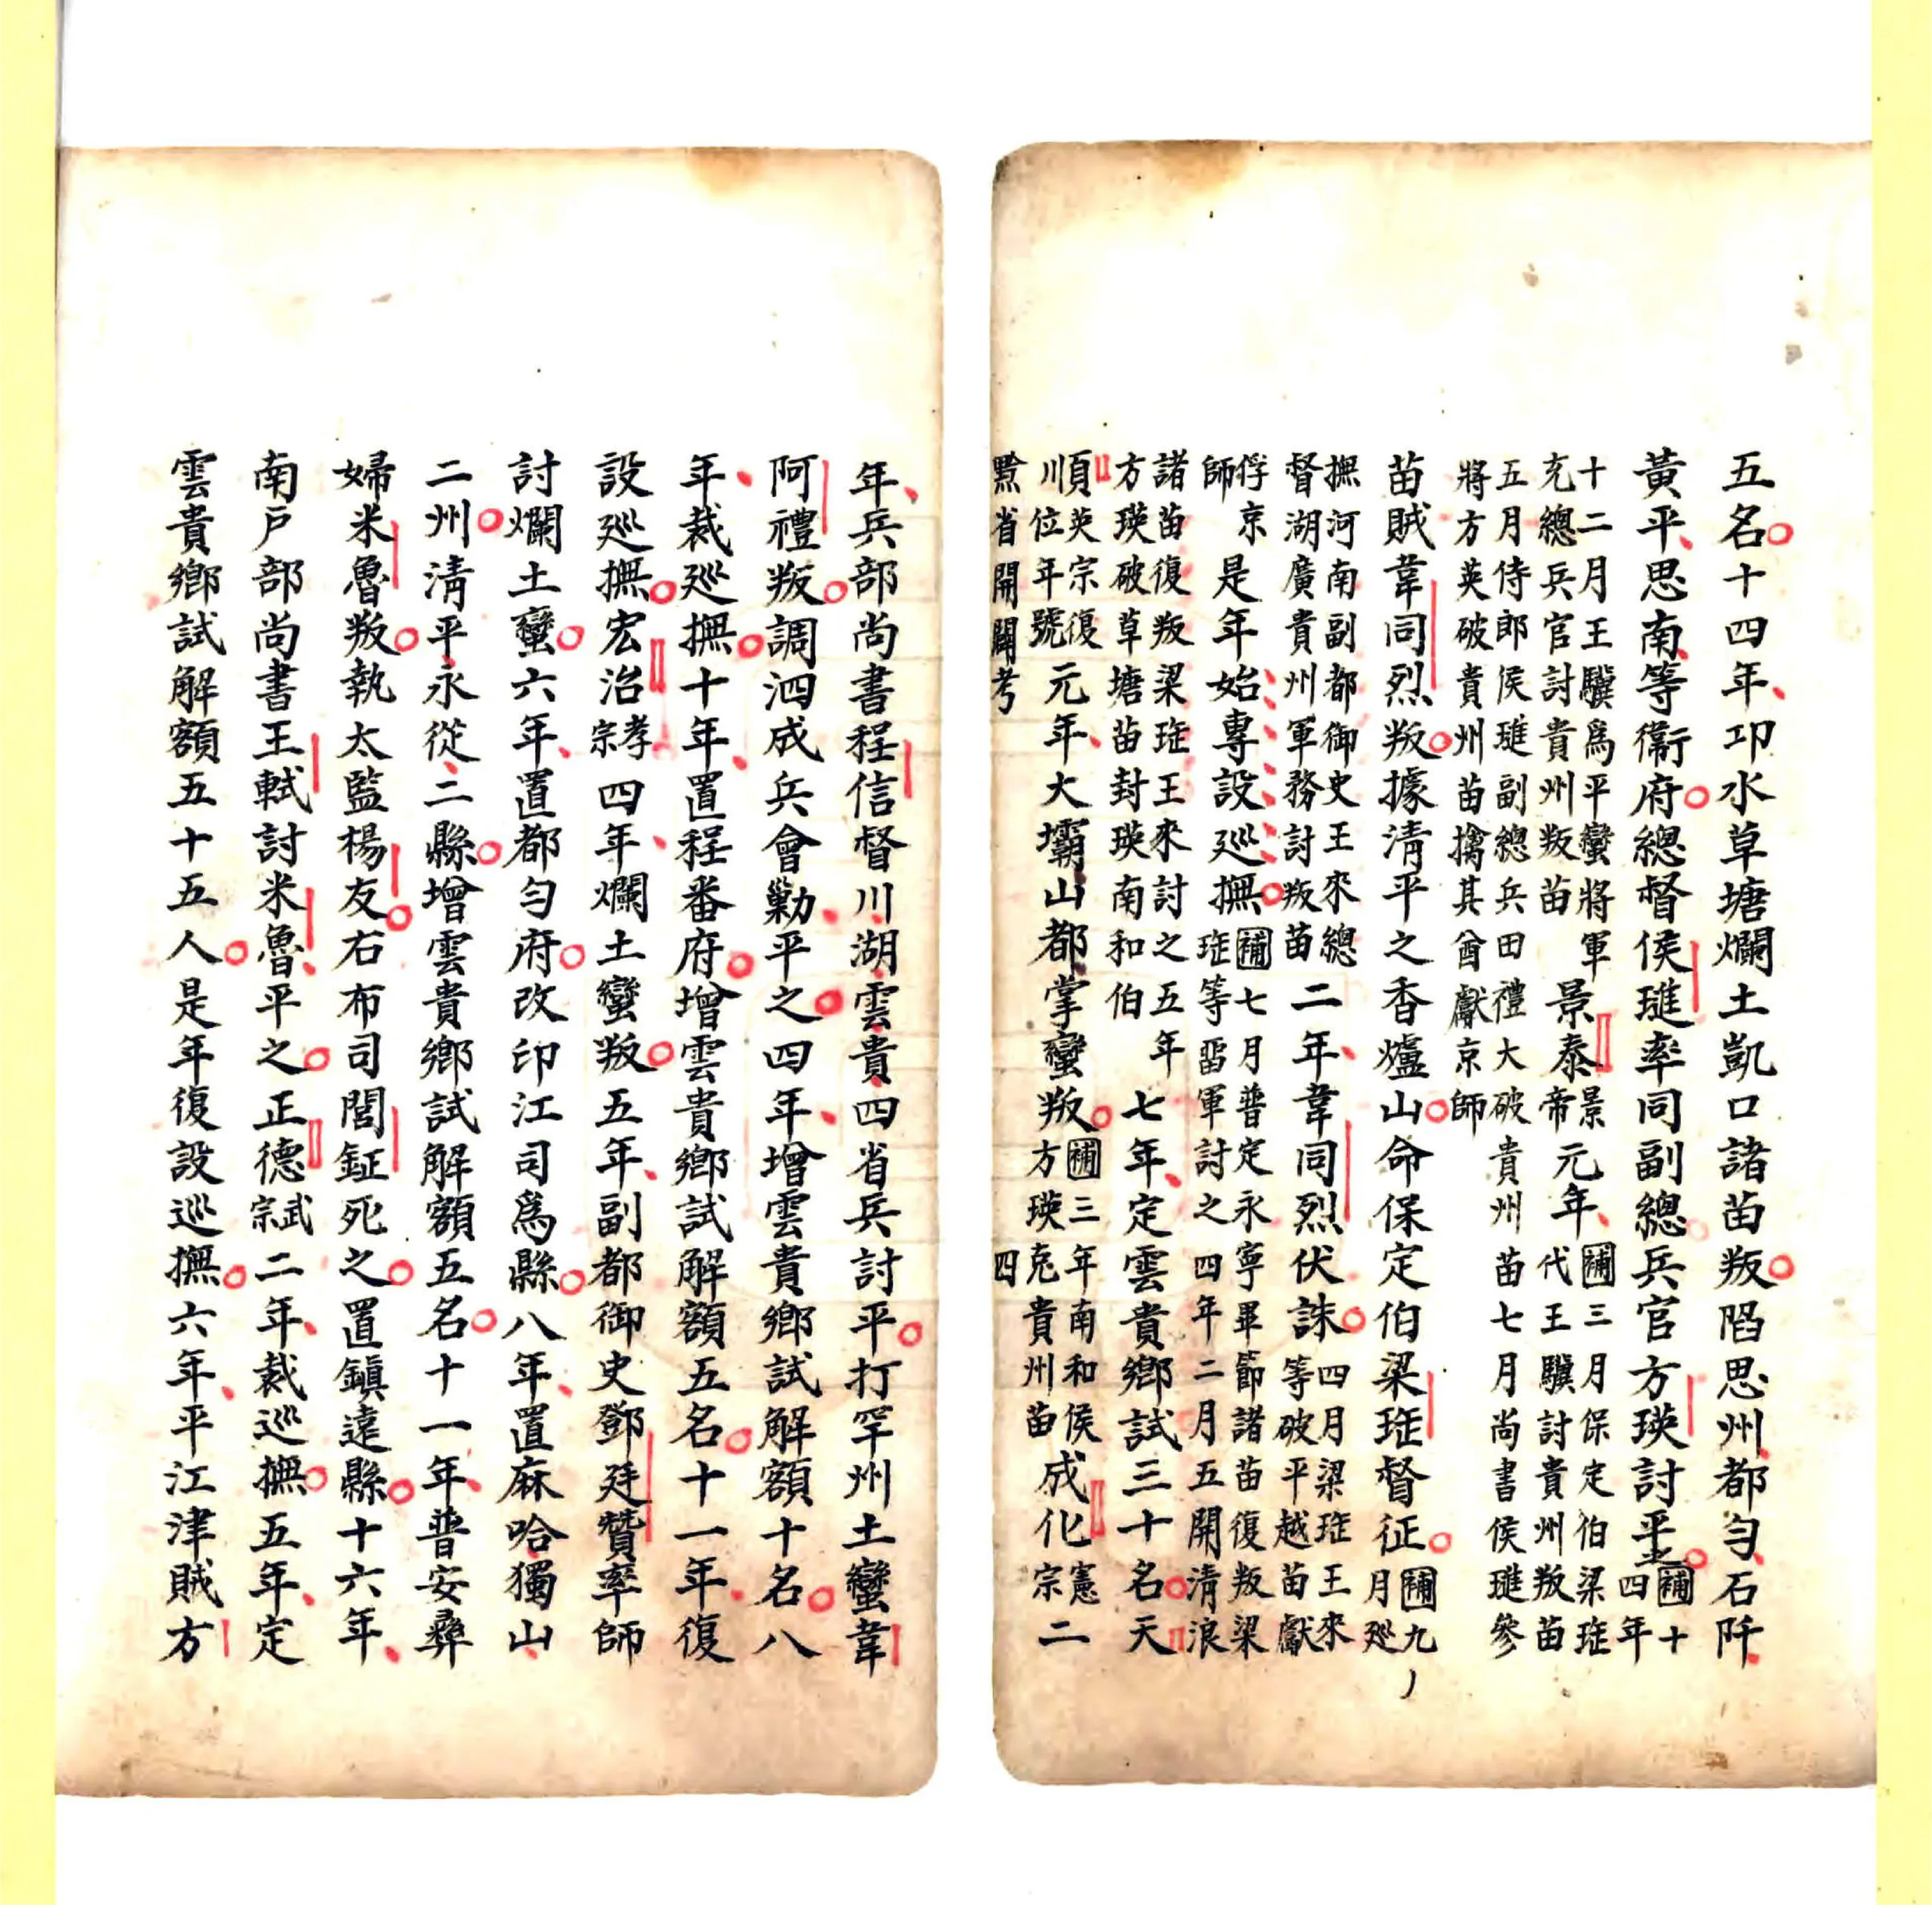 五名十四年卭水草塘爛土凱口諸苗叛陷思州都勻石阡
黃平思南等衞府總督侯璡率同副總兵官方瑛討平之補十四年
十二月王驥爲平蠻將軍充總兵官討貴州叛苗景泰景帝元年補三月保定伯梁珤代王驥討貴州叛苗
五月侍郎侯璡副總兵田禮大破貴州苗七月尚書侯璡參將方英破貴州苗擒其酋獻京師
苗賊韋同烈叛據淸平之香爐山命保定伯梁珤督征補九月廵
撫河南副都御史王來總督湖廣貴州軍務討叛苗二年韋同烈伏誅四月梁珤王來等破平越苗獻
俘京師是年始專設廵撫補七月普定永寧畢節諸苗復叛梁珤等畱軍討之四年二月五開淸浪
諸苗復叛梁珤王來討之五年方瑛破草塘苗封瑛南和伯七年定雲貴鄉試三十名天
順英宗復位年號元年大壩山都掌蠻叛補三年南和侯方瑛克貴州苗成化憲宗二
黔省開闢考 四
年兵部尚書程信督川湖雲貴四省兵討平打罕州土蠻韋
阿禮叛調泗成兵會勦平之四年增雲貴鄉試解額十名八
年裁廵撫十年置程番府增雲貴鄉試解額五名十一年復
設廵撫宏治孝宗四年爛土蠻叛五年副都御史鄧廷贊率師
討爛土蠻六年置都勻府改印江司爲縣八年置麻哈獨山
二州淸平永從二縣增雲貴鄉試解額五名十一年普安彝
婦米魯叛執太監楊友右布司閭鉦死之置鎭遠縣十六年
南戶部尚書王軾討米魯平之正德武宗二年裁廵撫五年定
雲貴鄉試解額五十五人是年復設廵撫六年平江津賊方